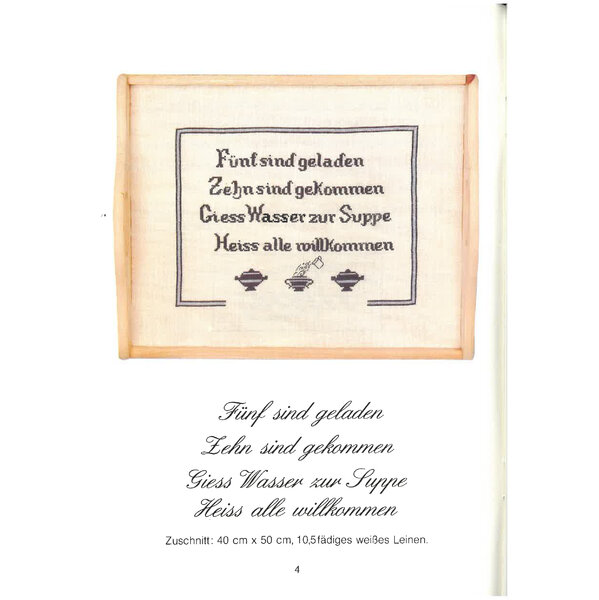 Fünf sind geladen
Zehn sind gekommen
Giess Wasser zur Suppe
Heiss alle willkommen
Fünf sind geladen
Zehn sind gekommen
Giess Wasser zur Suppe
Heiss alle willkommen
Zuschnitt: 40 cm x 50 cm, 10,5fädiges weißes Leinen.
4